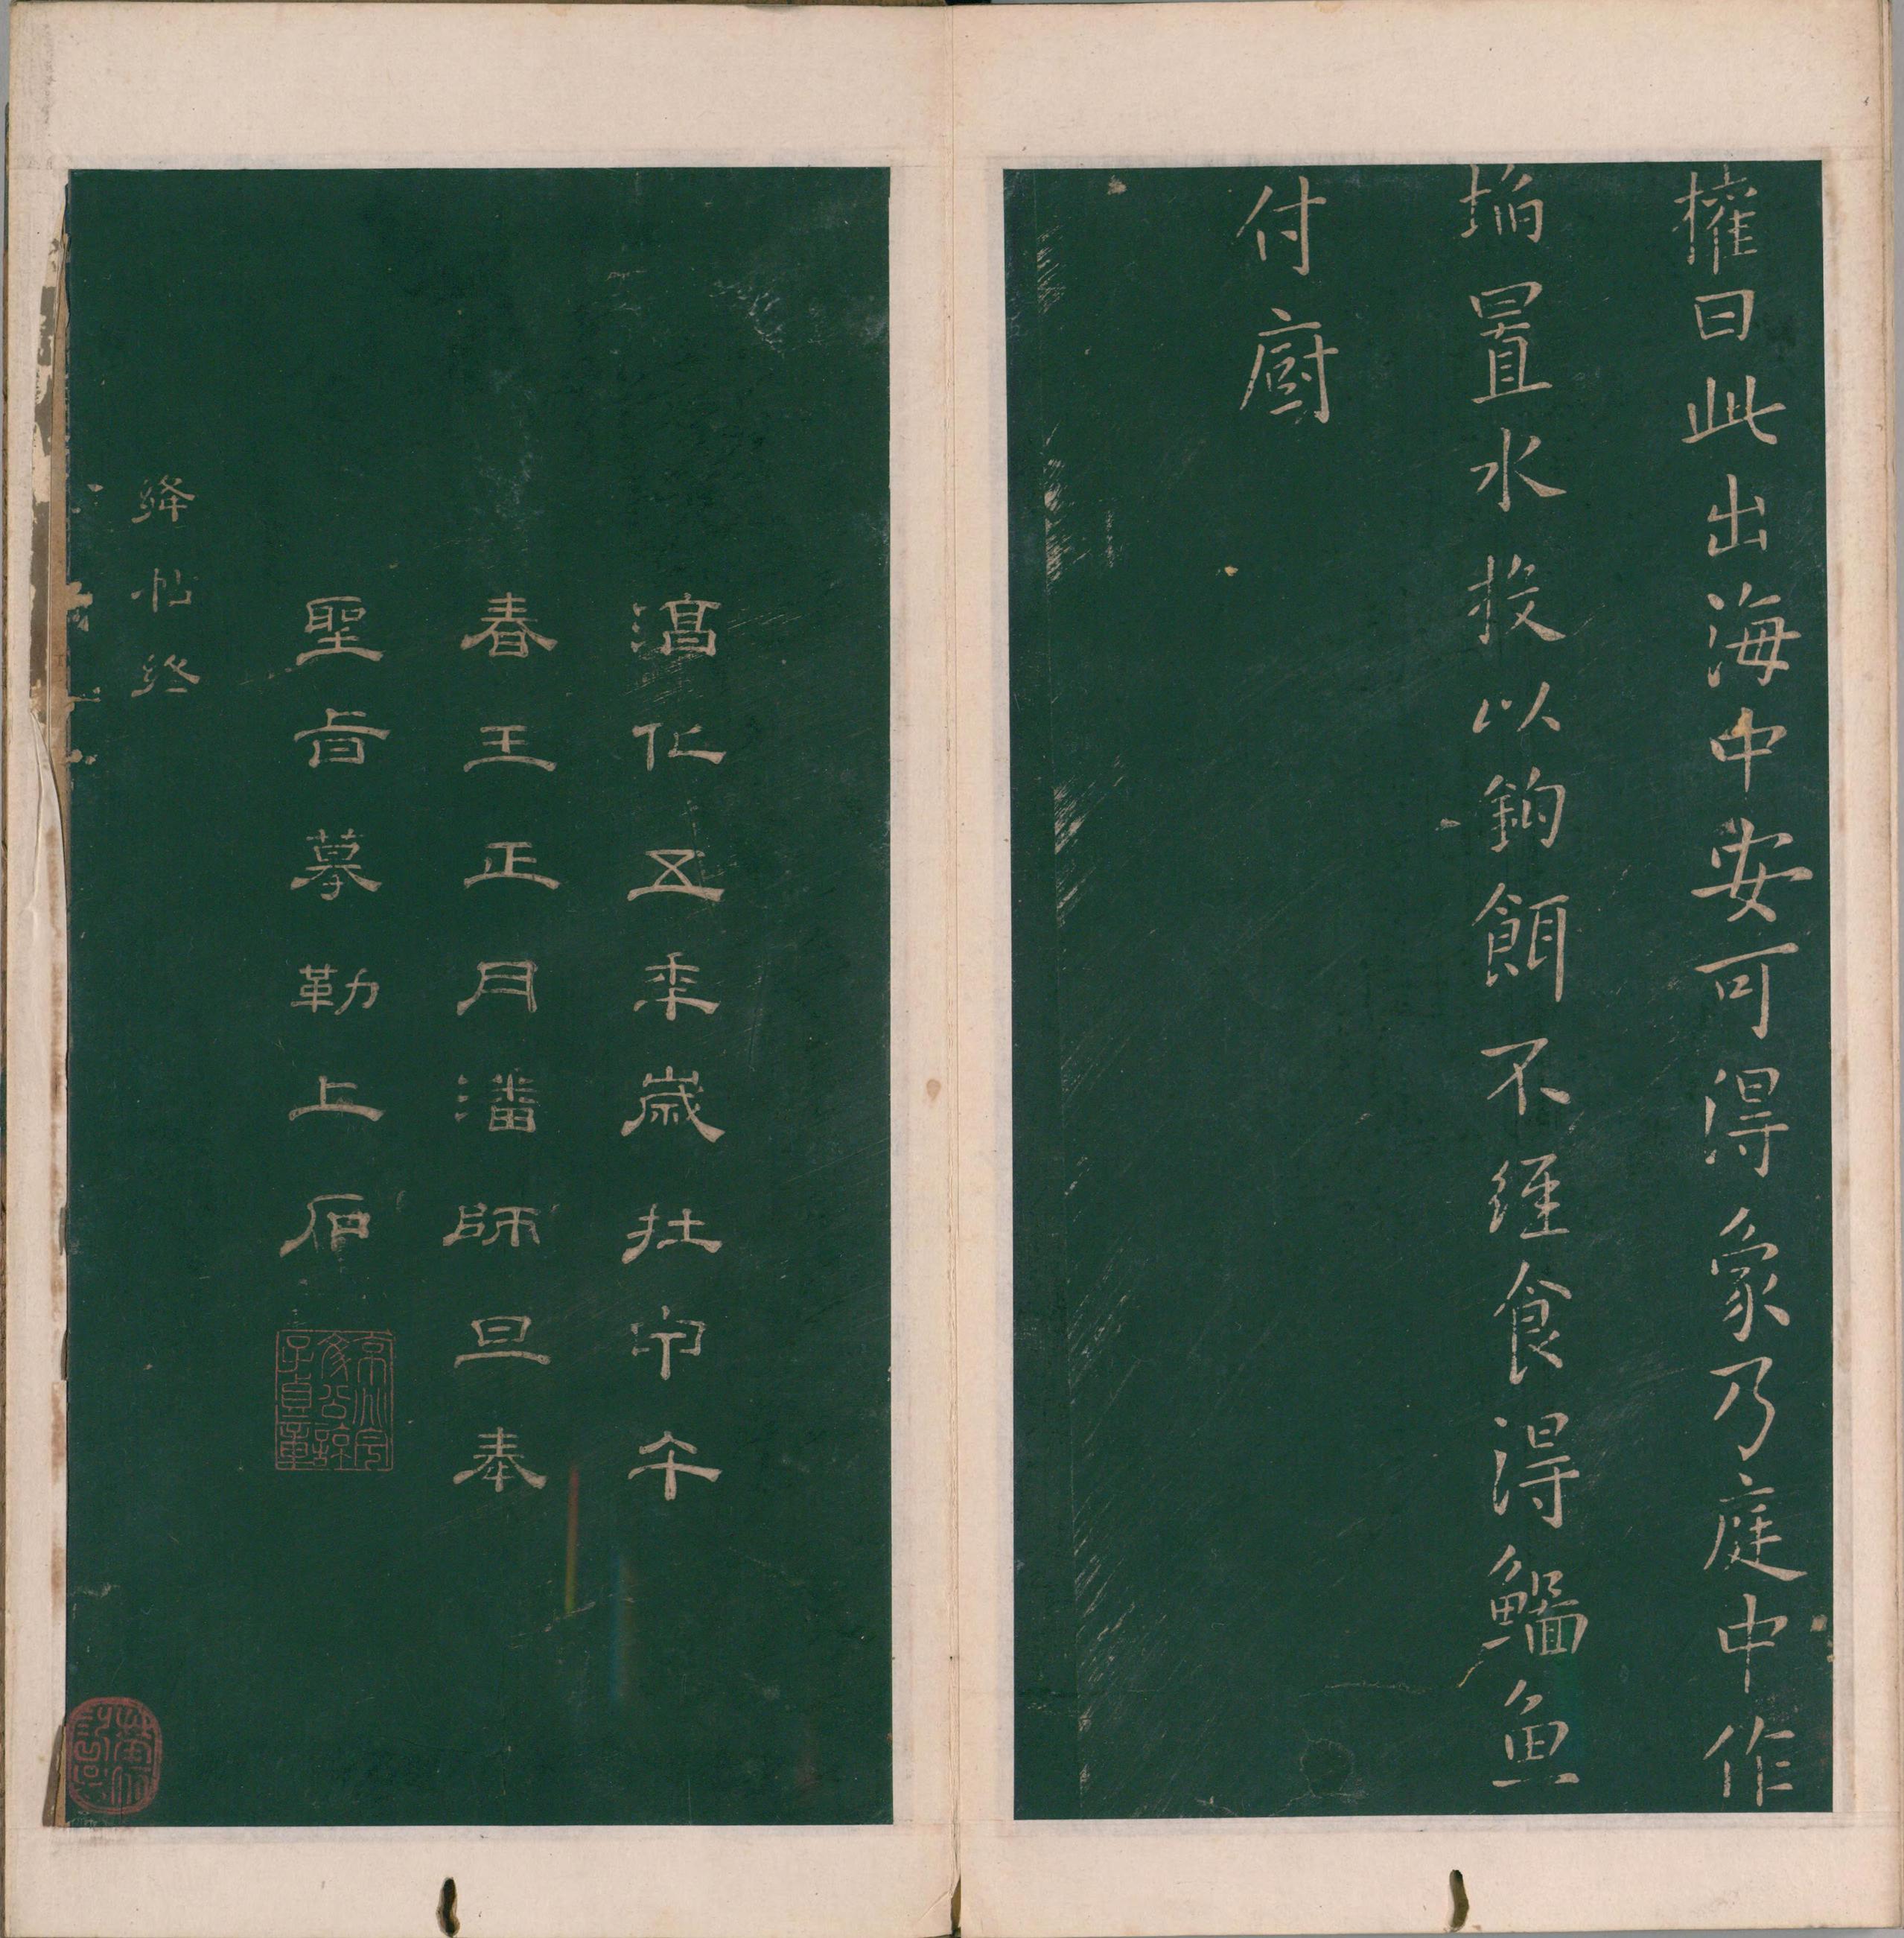 權曰此出海中安可得象乃庭中作
埳置水投以鉤餌不經食得鯔魚
付廚
淳化五年歲在甲午
春王正月潘師旦奉
聖旨摹勒上石
絳帖終